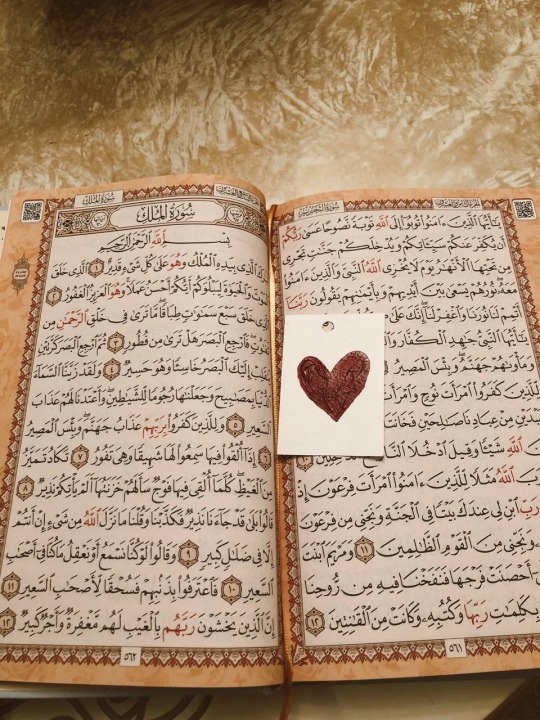 سُورَةُ التَّحْرِيمِ
يَـٰٓأَيُّهَا ٱلَّذِينَ ءَامَنُوا۟ تُوبُوٓا۟ إِلَى ٱللَّهِ تَوْبَةً نَّصُوحًا عَسَىٰ رَبُّكُمْ
أَن يُكَفِّرَ عَنكُمْ سَيِّـَٔاتِكُمْ وَيُدْخِلَكُمْ جَنَّـٰتٍ تَجْرِى
مِن تَحْتِهَا ٱلْأَنْهَـٰرُ يَوْمَ لَا يُخْزِى ٱللَّهُ ٱلنَّبِىَّ وَٱلَّذِينَ ءَامَنُوا۟
مَعَهُۥ نُورُهُمْ يَسْعَىٰ بَيْنَ أَيْدِيهِمْ وَبِأَيْمَـٰنِهِمْ يَقُولُونَ رَبَّنَآ
أَتْمِمْ لَنَا نُورَنَا وَٱغْفِرْ لَنَآ إِنَّكَ عَلَىٰ
يَـٰٓأَيُّهَا ٱلنَّبِىُّ جَـٰهِدِ ٱلْكُفَّارَ
وَمَأْوَىٰهُمْ جَهَنَّمُ وَبِئْسَ ٱلْمَصِيرُ
لِّلَّذِينَ كَفَرُوا۟ ٱمْرَأَتَ نُوحٍ وَٱمْرَأَتَ
مِنْ عِبَادِنَا صَـٰلِحَيْنِ فَخَانَتَا
ٱللَّهِ شَيْـًٔا وَقِيلَ ٱدْخُلَا ٱلنَّارَ
ٱللَّهُ مَثَلًا لِّلَّذِينَ ءَامَنُوا۟ ٱمْرَأَتَ فِرْعَوْنَ إِذْ
رَبِّ ٱبْنِ لِى عِندَكَ بَيْتًا فِى ٱلْجَنَّةِ وَنَجِّنِى مِن فِرْعَوْنَ
وَنَجِّنِى مِنَ ٱلْقَوْمِ ٱلظَّـٰلِمِينَ ١١ وَمَرْيَمَ ٱبْنَتَ
أَحْصَنَتْ فَرْجَهَا فَنَفَخْنَا فِيهِ مِن رُّوحِنَا
بِكَلِمَـٰتِ رَبِّهَا وَكُتُبِهِۦ وَكَانَتْ مِنَ ٱلْقَـٰنِتِينَ ١٢
٥٦١
سُورَةُ المُلْكِ
سُورَةُ المُلْكِ
بِسْمِ ٱللَّهِ ٱلرَّحْمَـٰنِ ٱلرَّحِيمِ
ٱلَّذِى بِيَدِهِ ٱلْمُلْكُ وَهُوَ عَلَىٰ كُلِّ شَىْءٍ قَدِيرٌ ١ ٱلَّذِى خَلَقَ
ٱلْمَوْتَ وَٱلْحَيَوٰةَ لِيَبْلُوَكُمْ أَيُّكُمْ أَحْسَنُ عَمَلًا وَهُوَ ٱلْعَزِيزُ ٱلْغَفُورُ ٢
ٱلَّذِى خَلَقَ سَبْعَ سَمَـٰوَٰتٍ طِبَاقًا مَّا تَرَىٰ فِى خَلْقِ ٱلرَّحْمَـٰنِ مِن
تَفَـٰوُتٍ فَٱرْجِعِ ٱلْبَصَرَ هَلْ تَرَىٰ مِن فُطُورٍ ٣ ثُمَّ ٱرْجِعِ ٱلْبَصَرَ كَرَّتَيْنِ
يَنقَلِبْ إِلَيْكَ ٱلْبَصَرُ خَاسِئًا وَهُوَ حَسِيرٌ ٤ وَلَقَدْ زَيَّنَّا ٱلسَّمَآءَ
ٱلدُّنْيَا بِمَصَـٰبِيحَ وَجَعَلْنَـٰهَا رُجُومًا لِّلشَّيَـٰطِينِ وَأَعْتَدْنَا لَهُمْ عَذَابَ
ٱلسَّعِيرِ ٥ وَلِلَّذِينَ كَفَرُوا۟ بِرَبِّهِمْ عَذَابُ جَهَنَّمَ وَبِئْسَ ٱلْمَصِيرُ
٦ إِذَآ أُلْقُوا۟ فِيهَا سَمِعُوا۟ لَهَا شَهِيقًا وَهِىَ تَفُورُ ٧ تَكَادُ تَمَيَّزُ
مِنَ ٱلْغَيْظِ كُلَّمَآ أُلْقِىَ فِيهَا فَوْجٌ سَأَلَهُمْ خَزَنَتُهَآ أَلَمْ يَأْتِكُمْ نَذِيرٌ ٨
قَالُوا۟ بَلَىٰ قَدْ جَآءَنَا نَذِيرٌ فَكَذَّبْنَا وَقُلْنَا مَا نَزَّلَ ٱللَّهُ مِن شَىْءٍ إِنْ أَنتُمْ
إِلَّا فِى ضَلَـٰلٍ كَبِيرٍ ٩ وَقَالُوا۟ لَوْ كُنَّا نَسْمَعُ أَوْ نَعْقِلُ مَا كُنَّا فِىٓ أَصْحَـٰبِ
ٱلسَّعِيرِ ١٠ فَٱعْتَرَفُوا۟ بِذَنۢبِهِمْ فَسُحْقًا لِّأَصْحَـٰبِ ٱلسَّعِيرِ ١١
إِنَّ ٱلَّذِينَ يَخْشَوْنَ رَبَّهُم بِٱلْغَيْبِ لَهُم مَّغْفِرَةٌ وَأَجْرٌ كَبِيرٌ ١٢
٥٦٢